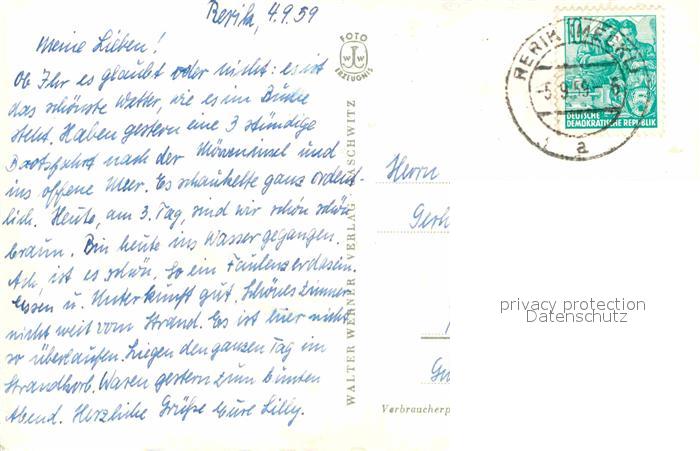 Rerik, 4.9.59
Meine Lieben!
Ob Ihr es glaubt oder nicht: es ist
das schönste Wetter, wie es im Buche
steht. Haben gestern eine 3 stündige
Bootsfahrt nach der Möweninsel und
ins offene Meer. Es schaukelte ganz ordent-
lich. Heute, am 3. Tag, sind wir schon schön
braun. Bin heute ins Wasser gegangen.
Ach, ist es schön. So ein Faulenzerdasein.
Essen u. Unterkunft gut. Schönes Zimmer
nicht weit vom Strand. Es ist hier nicht
so überlaufen. Liegen den ganzen Tag im
Strandkorb. Waren gestern zum Bunten
Abend. Herzliche Grüße Eure Lilly.
FOTO
W W
ERZEUGNIS
WALTER WERNER VERLAG
Verbraucherp
RERIK (MECKL)
-5.9.59
a
10
DEUTSCHE
DEMOKRATISCHE REPUBLIK
Herrn
Gerh
privacy protection
Datenschutz